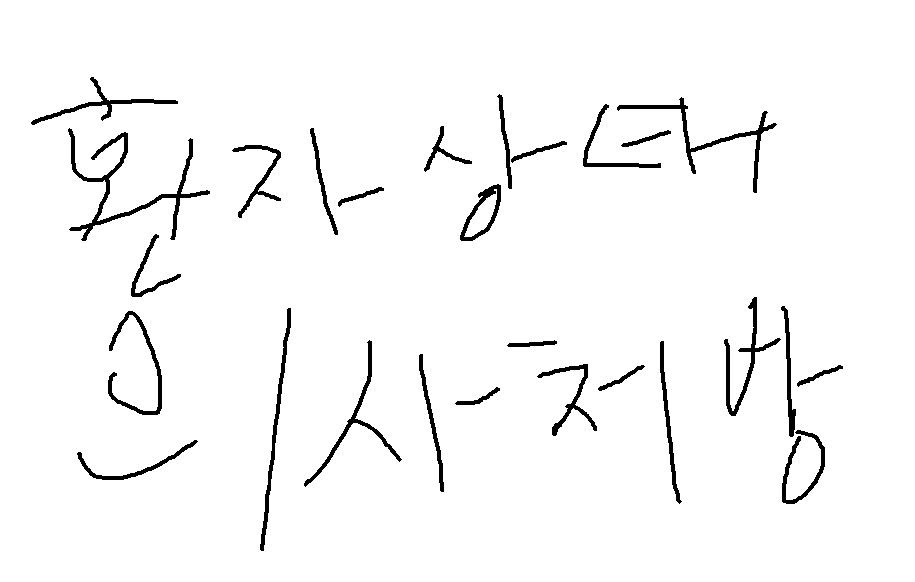 환자상태
의사처방